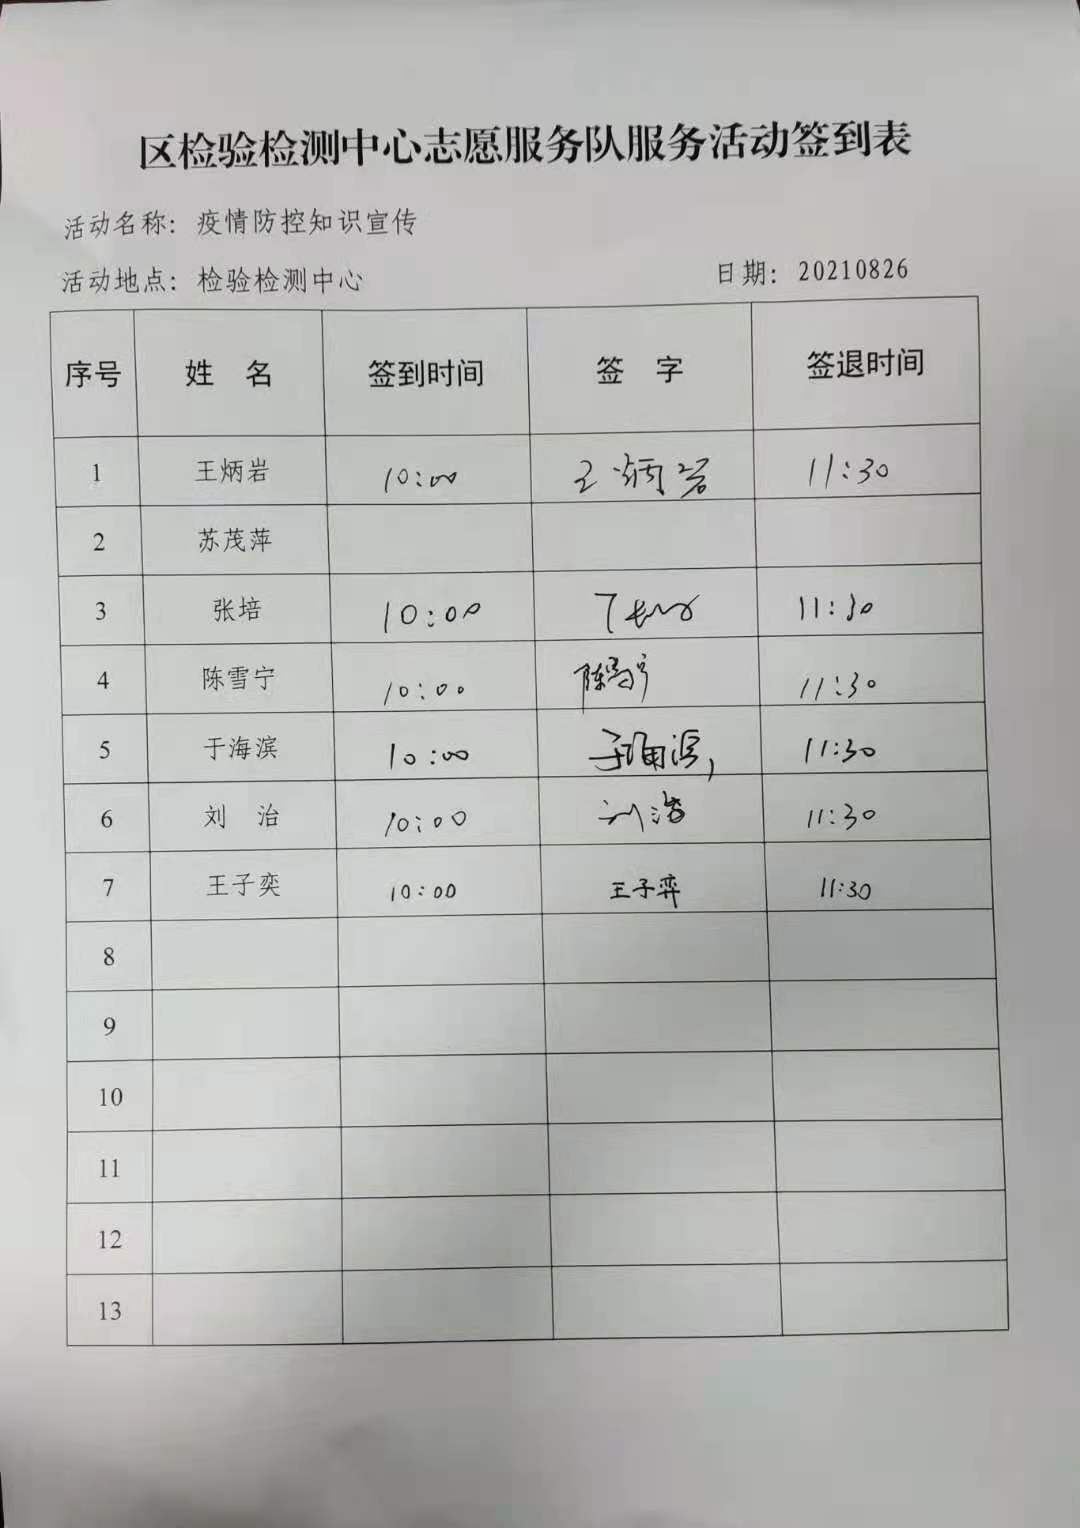 区检验检测中心志愿服务队服务活动签到表
活动名称：疫情防控知识宣传
活动地点：检验检测中心 日期：20210826
序号 姓 名 签到时间 签 字 签退时间
1 王炳岩 10:00 王炳岩 11:30
2 苏茂萍
3 张培 10:00 11:30
4 陈雪宁 10:00 陈雪宁 11:30
5 于海滨 10:00 于海滨 11:30
6 刘 治 10:00 刘治 11:30
7 王子奕 10:00 王子弈 11:30
8
9
10
11
12
13